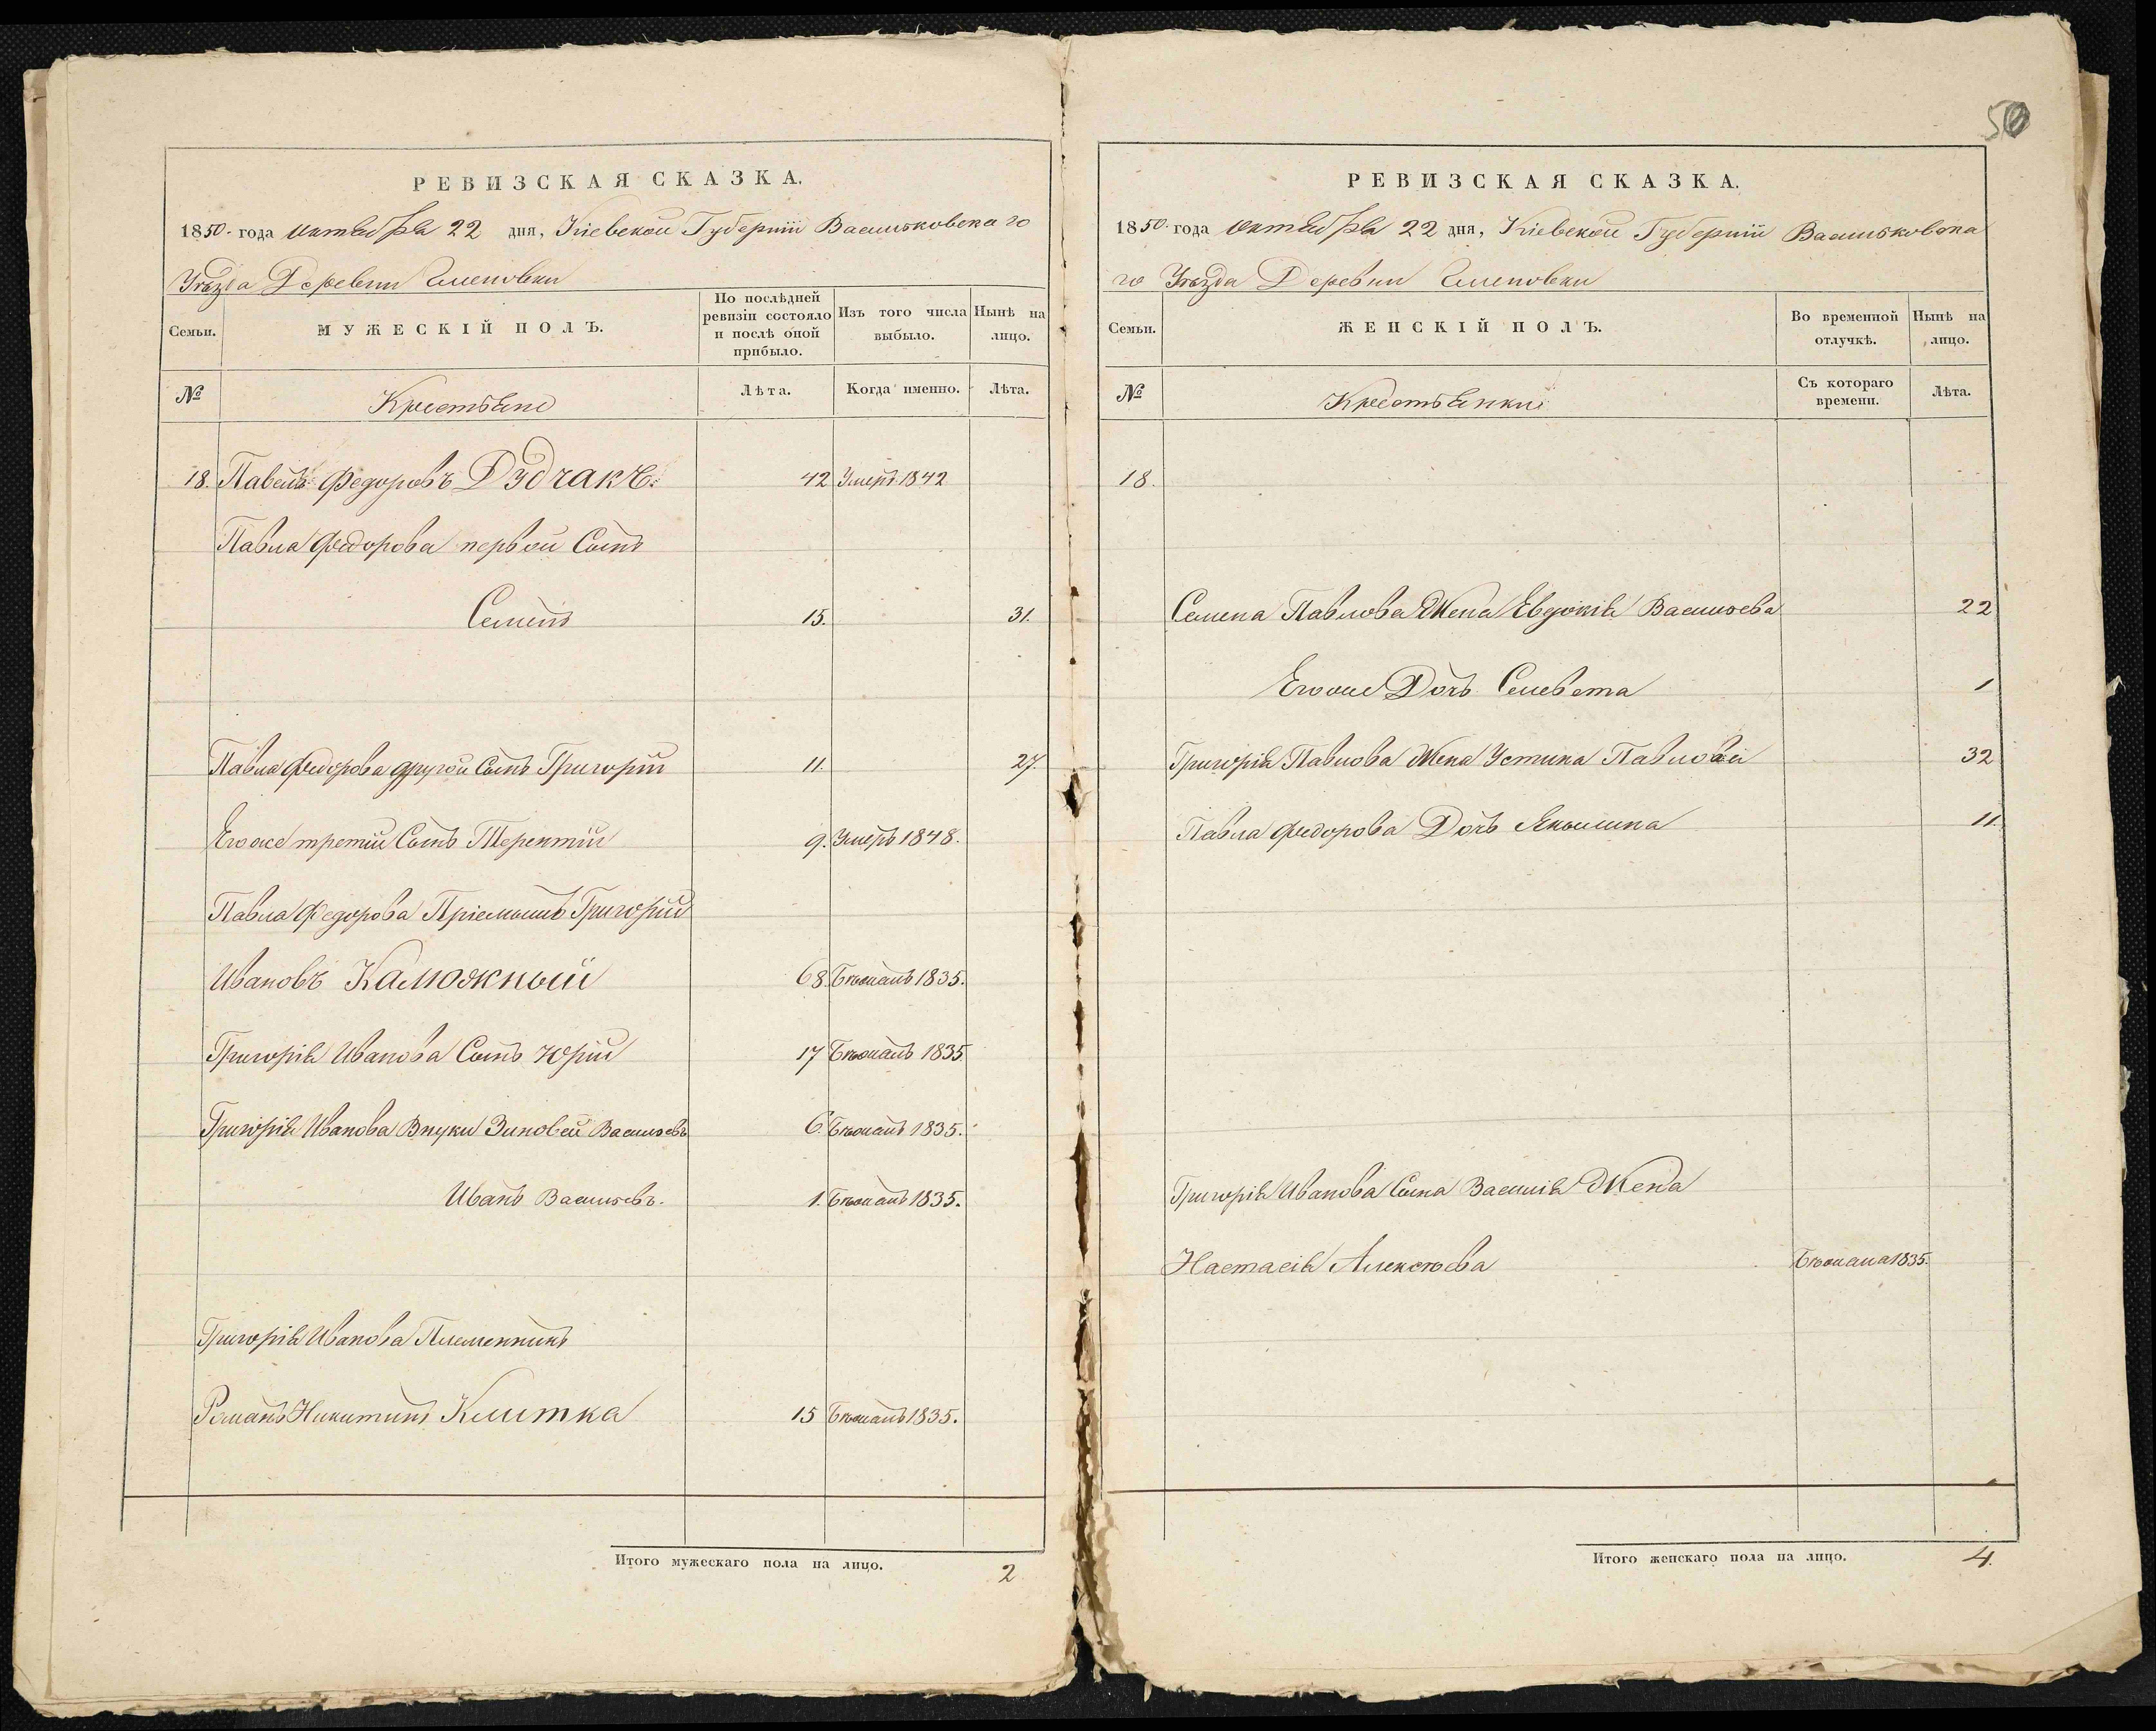 50
РЕВИЗСКАЯ СКАЗКА.
1850. года Октября 22 дня, Кіевской Губерніи Васильковска го
Уѣзда Деревни
Семьи.
МУЖЕСКІЙ ПОЛЪ.
По послѣдней ревизіи состояло и послѣ оной прибыло.
Изъ того числа выбыло.
Нынѣ на лицо.
№
Крестьяне
Лѣта.
Когда именно.
Лѣта.
18. Павелъ Федоровъ Дудчакъ. 42 Умеръ 1842
Павла Федорова первой Сынъ
Семенъ 15. 31.
Павла Федорова другой Сынъ Григорій 11. 27.
Его же третій Сынъ Терентій 9. Умеръ 1848.
Павла Федорова Пріемышъ Григорій
Ивановъ Калюжный 68. Бѣжалъ 1835.
Григорія Иванова Сынъ Юрій 17 Бѣжалъ 1835
Григорія Иванова Внуки Зиновей Васильевъ 6. Бѣжалъ 1835.
Иванъ Васильевъ. 1. Бѣжалъ 1835.
Григорія Иванова Племенникъ
Романъ Никитинъ Клитка 15 Бѣжалъ 1835.
Итого мужескаго пола на лицо. 2
РЕВИЗСКАЯ СКАЗКА.
1850. года Октября 22 дня, Кіевской Губерніи Васильковска
го Уѣзда Деревни
Семьи.
ЖЕНСКІЙ ПОЛЪ.
Во временной отлучкѣ.
Нынѣ на лицо.
№
Крестьянки
Съ котораго времени.
Лѣта.
18.
Семена Павлова Жена Евдокія Васильева 22
Его же Дочь 1
Григорія Павлова Жена Устина Павлова 32
Павла Федорова Дочь Якылина 11.
Григорія Иванова Сына Василія Жена
Настасія Алексѣева Бѣжала 1835.
Итого женскаго пола на лицо. 4.